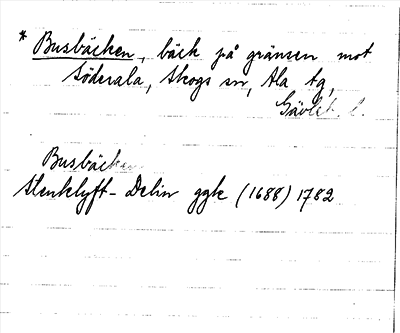 * Busbäcken, bäck på gränsen mot
Söderala, Skogs sn, Ala tg,
Gävleb. l.
Busbäcken
Stenklyft-Delin ggk (1688) 1782